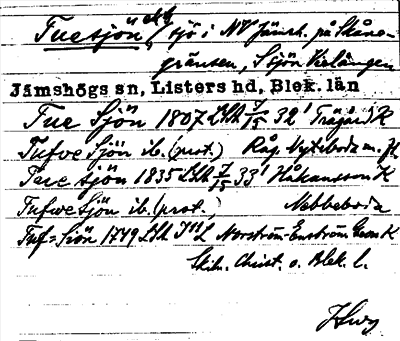 Tuesjön, sjö i NV Jämsh. på Skåne-
gränsen, S sjön Vielången
Jämshögs sn, Listers hd, Blek. län
Tue Sjön 1807 LSA 7/15 32' Trägård K
Tufve Sjön ib. (prot.) Råg. Nyteboda m. fl.
Tue sjön 1835 LSA 7/15 33' Håkansson K
Tufwe Sjön ib. (prot.) Nebbeboda
Tuf-Siön 1749 Norström-Enström Geom K
Skån. Christ. o. Blek. l.